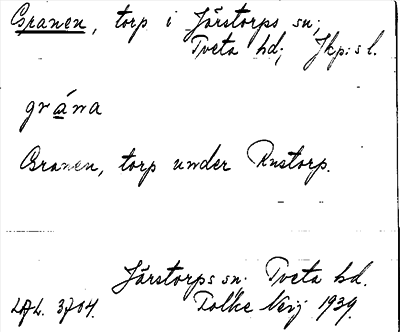 Granen, torp i Järstorps sn;
Tveta hd; Jkp:s l.
gråna
Granen, torp under Rustorp.
Järstorps sn. Tveta hd.
LAL. 3704. Tolke Neij 1939.